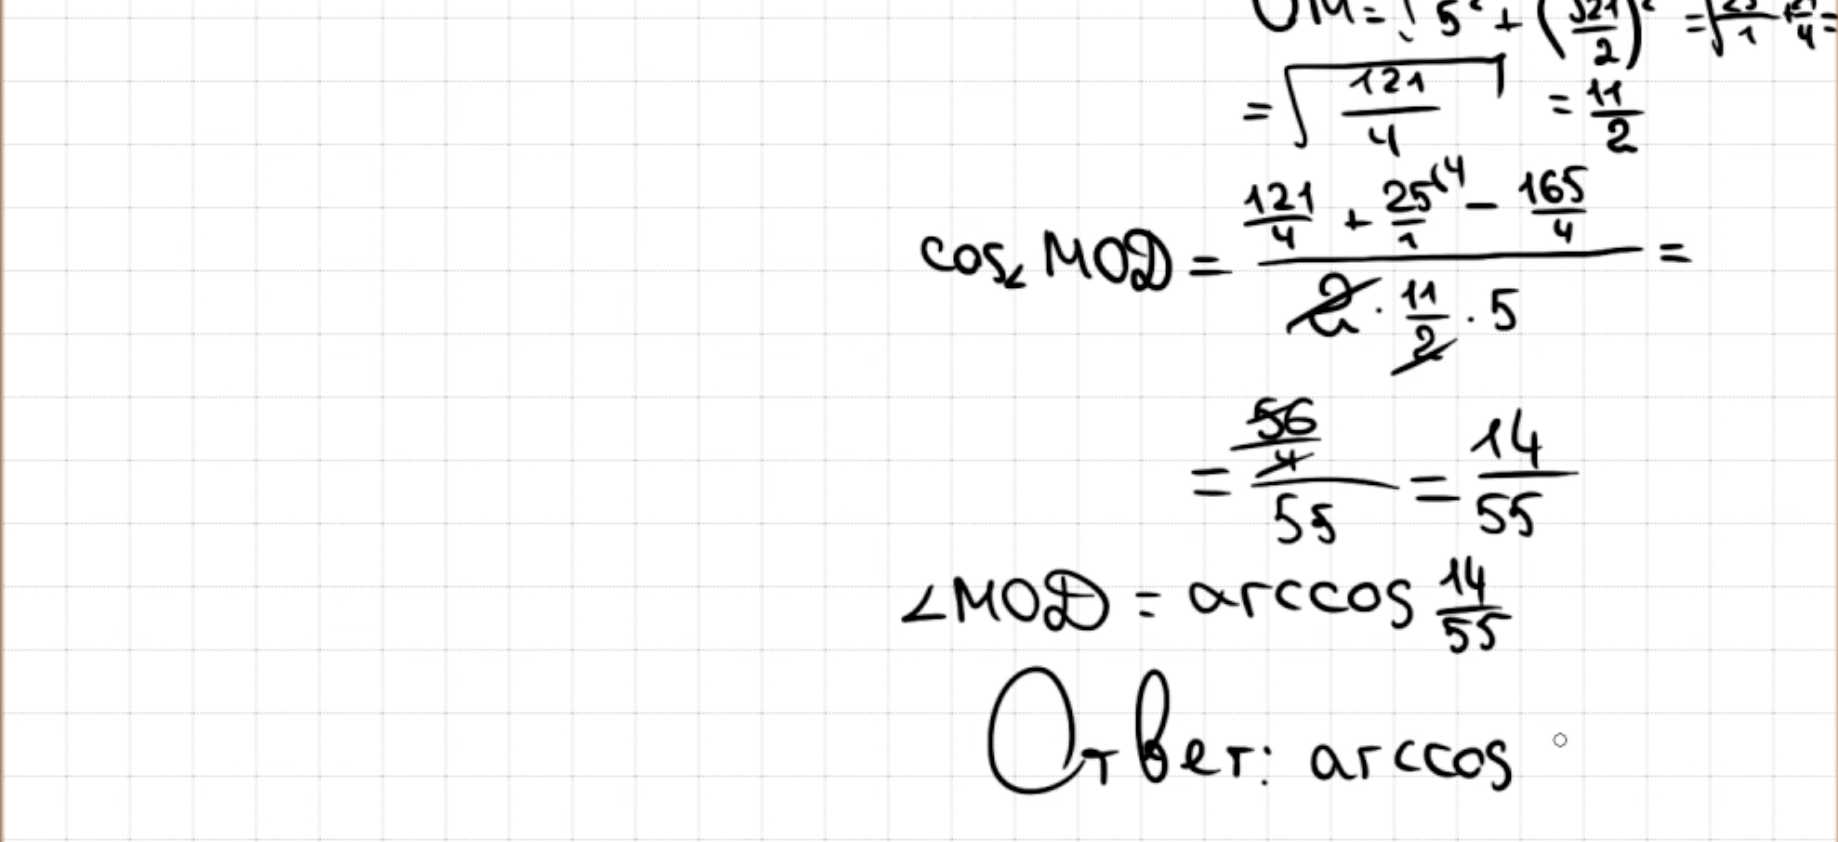 OM = √5² + (√21/2)² = √25/1 + 21/4 =
= √121/4 = 11/2
cos∠MOD = (121/4 + 25/1⁽⁴ − 165/4)/(2 · 11/2 · 5) =
= (56/4)/55 = 14/55
∠MOD = arccos 14/55
Ответ: arccos